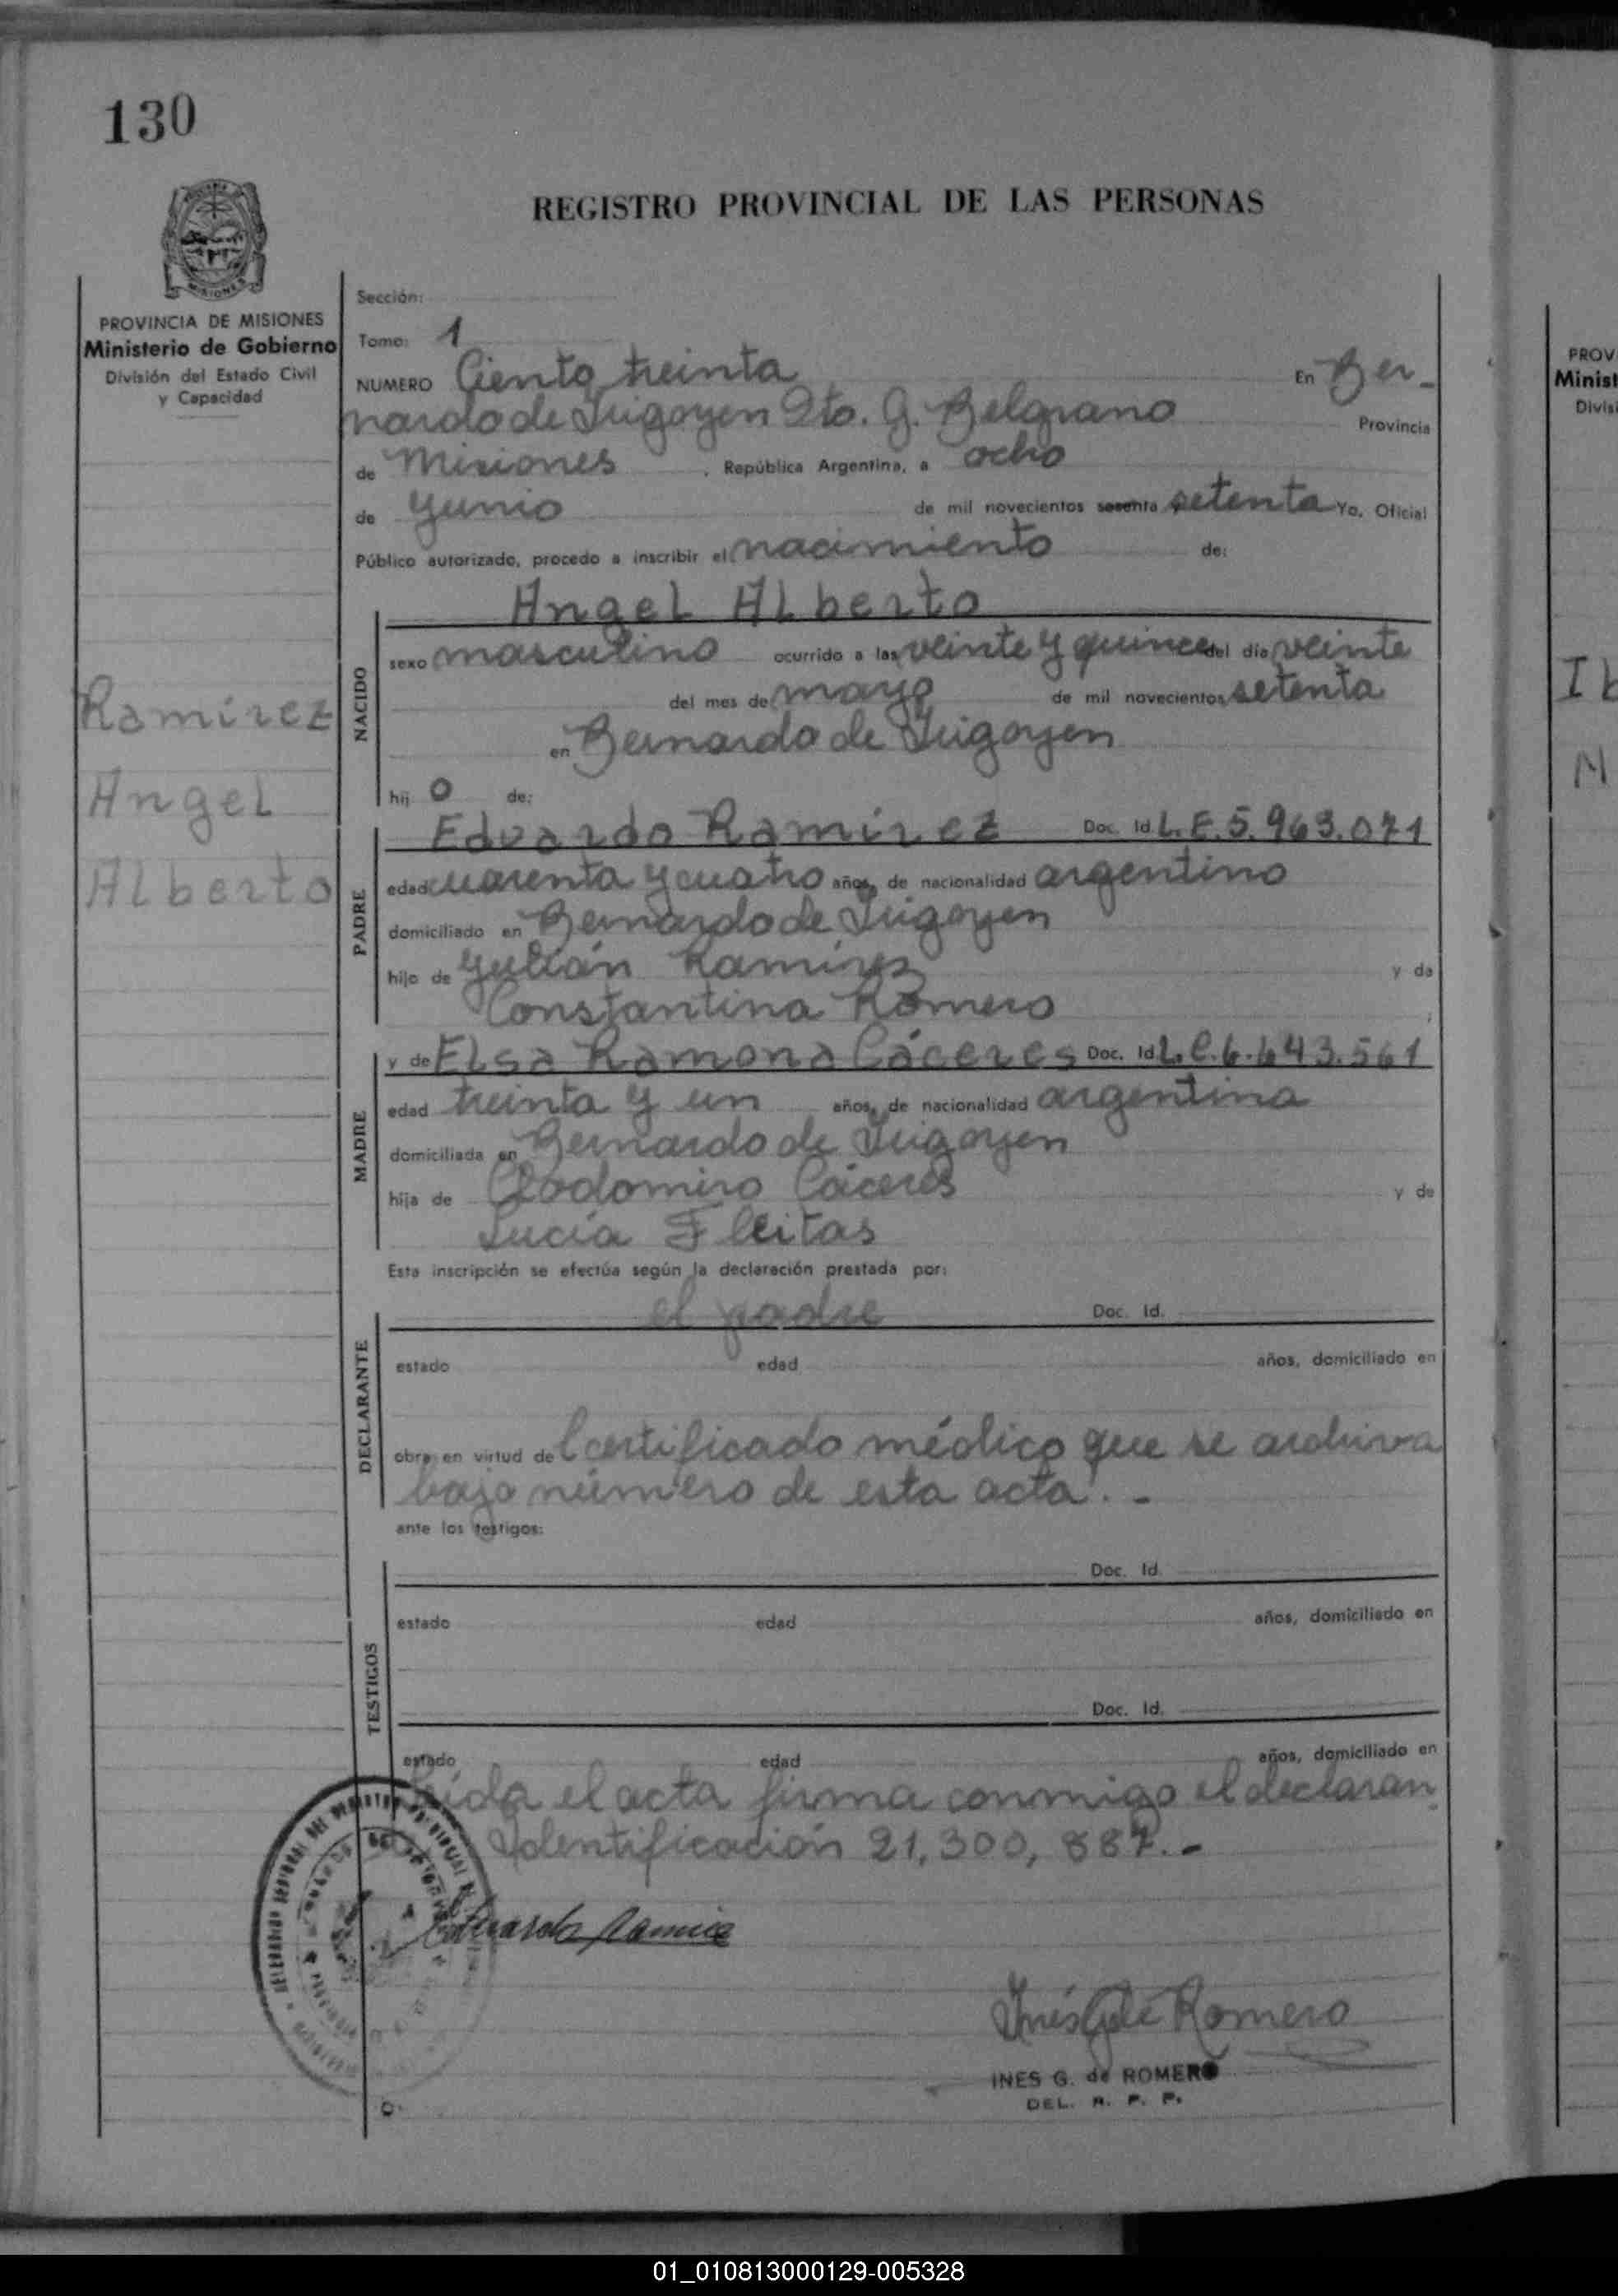 130
REGISTRO PROVINCIAL DE LAS PERSONAS
MISIONES
PROVINCIA DE MISIONES
Ministerio de Gobierno
División del Estado Civil
y Capacidad
Ramirez
Angel
Alberto
Sección:
Tomo: 1
NUMERO Ciento treinta En Ber-
nardo de Irigoyen Dto. G. Belgrano Provincia
de Misiones, República Argentina, a ocho
de Junio de mil novecientos sesenta setenta Yo, Oficial
Público autorizado, procedo a inscribir el nacimiento de:
Angel Alberto
NACIDO
sexo masculino ocurrido a las veinte y quince del día veinte
del mes de mayo de mil novecientos setenta
en Bernardo de Irigoyen
hij o de:
Eduardo Ramirez Doc. Id. L.E. 5.963.071
PADRE
edad cuarenta y cuatro años, de nacionalidad argentino
domiciliado en Bernardo de Irigoyen
hijo de Julián Ramirez y de
Constantina Romero
y de Elsa Ramona Cáceres Doc. Id. L.C. 6.643.561
MADRE
edad treinta y un años, de nacionalidad argentina
domiciliada en Bernardo de Irigoyen
hija de Clodomiro Cáceres y de
Lucía Fleitas
Esta inscripción se efectúa según la declaración prestada por:
el padre Doc. Id.
DECLARANTE
estado edad años, domiciliado en
obra en virtud de Certificado médico que se archiva
bajo número de esta acta.-
ante los testigos:
Doc. Id.
TESTIGOS
estado edad años, domiciliado en
Doc. Id.
estado edad años, domiciliado en
el acta firma conmigo el declaran
Identificación 21,300,887.-
Eduardo Ramirez
Inés G. de Romero
INES G. de ROMERO
DEL. R. P. P.
PROV
Minist
Divisi
01_010813000129-005328